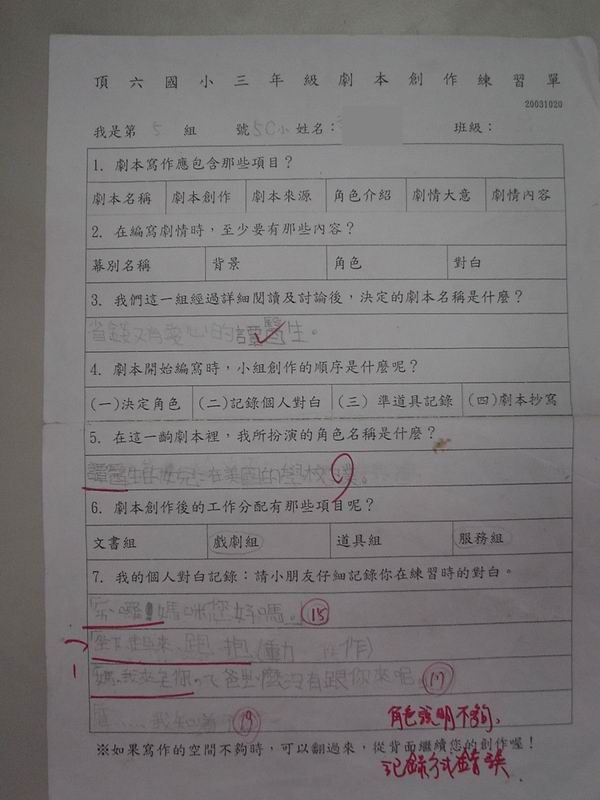 頂六國小三年級劇本創作練習單
20031020
我是第 5 組 號 姓名： 班級：
1. 劇本寫作應包含那些項目？
劇本名稱 劇本創作 劇本來源 角色介紹 劇情大意 劇情內容
2. 在編寫劇情時，至少要有那些內容？
幕別名稱 背景 角色 對白
3. 我們這一組經過詳細閱讀及討論後，決定的劇本名稱是什麼？
省錢又有愛心的譚醫生。
4. 劇本開始編寫時，小組創作的順序是什麼呢？
(一)決定角色 (二)記錄個人對白 (三) 準道具記錄 (四)劇本抄寫
5. 在這一齣劇本裡，我所扮演的角色名稱是什麼？
譚醫生的女兒在美國的
6. 劇本創作後的工作分配有那些項目呢？
文書組 戲劇組 道具組 服務組
7. 我的個人對白記錄：請小朋友仔細記錄你在練習時的對白。
媽咪您好嗎。 15
起來、跑、抱(動作)
沒有跟你來呢。 17
我知道 19
角色說明不夠、
※如果寫作的空間不夠時，可以翻過來，從背面繼續您的創作喔！
記錄方式錯誤